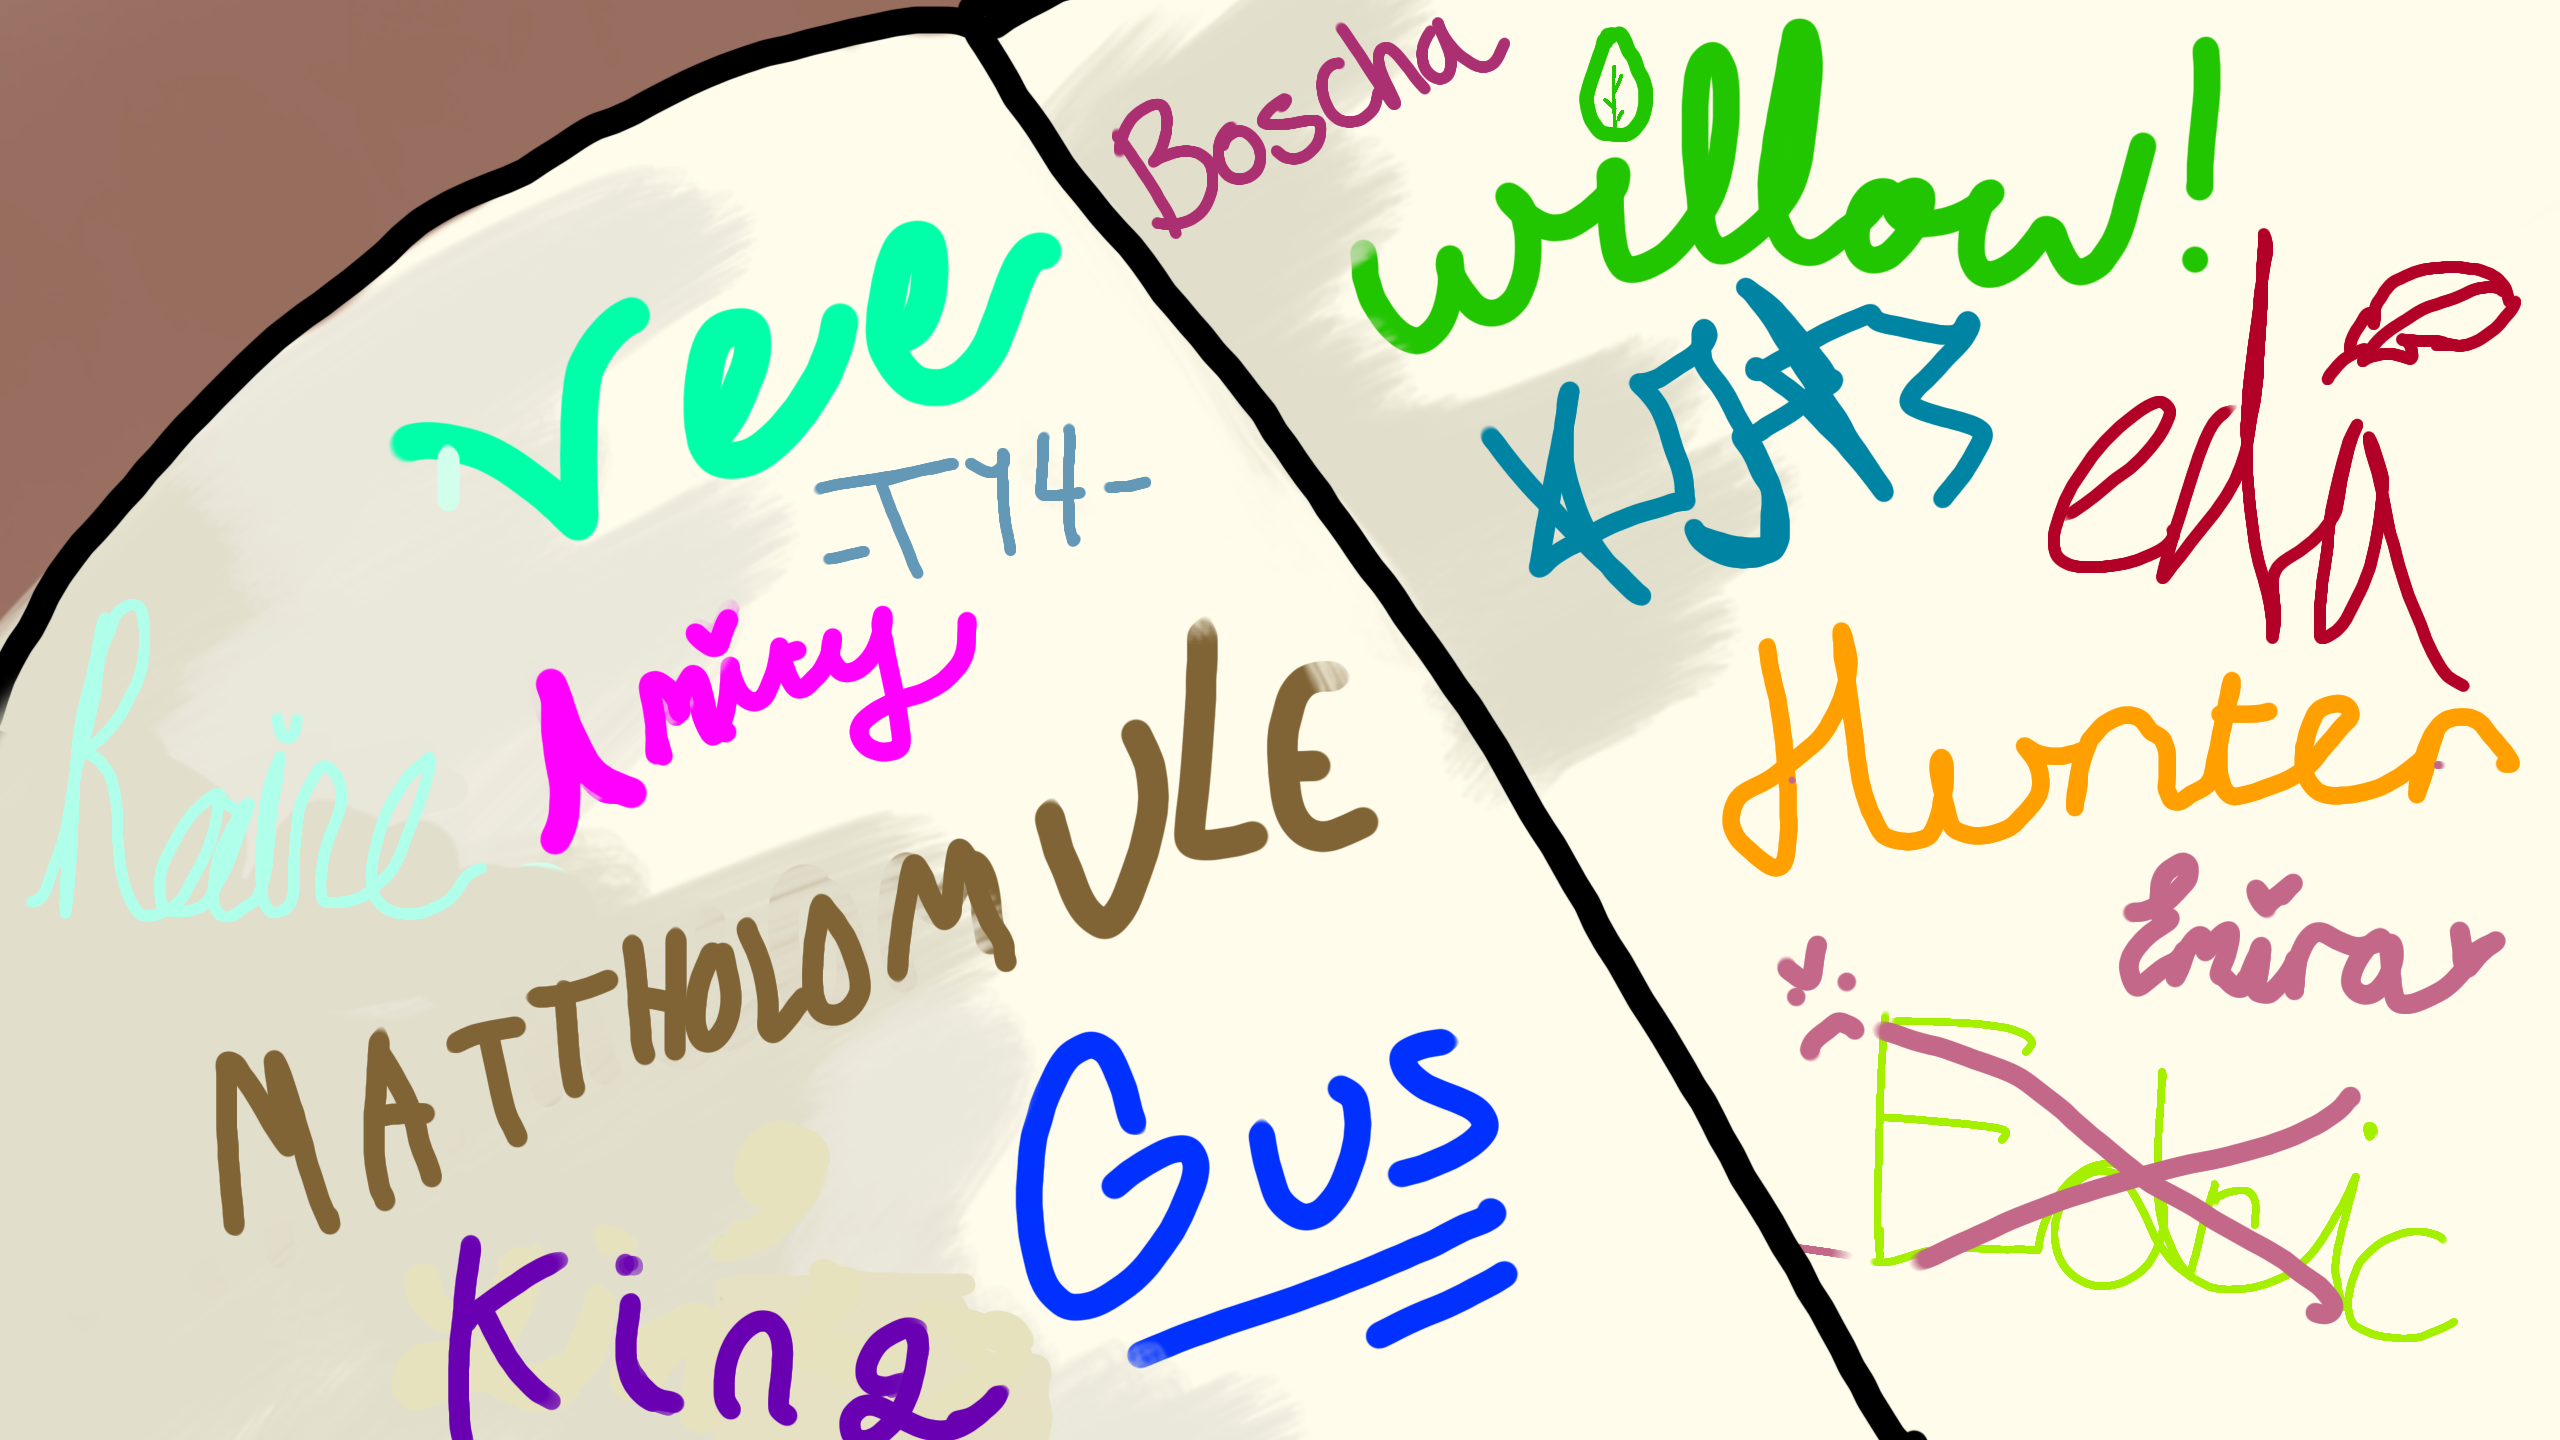 Vee
-TY4-
Raine
Amity
MATTHOLOMULE
Gus
King
Boscha
willow!
eda
Hunter
Emira
Edric